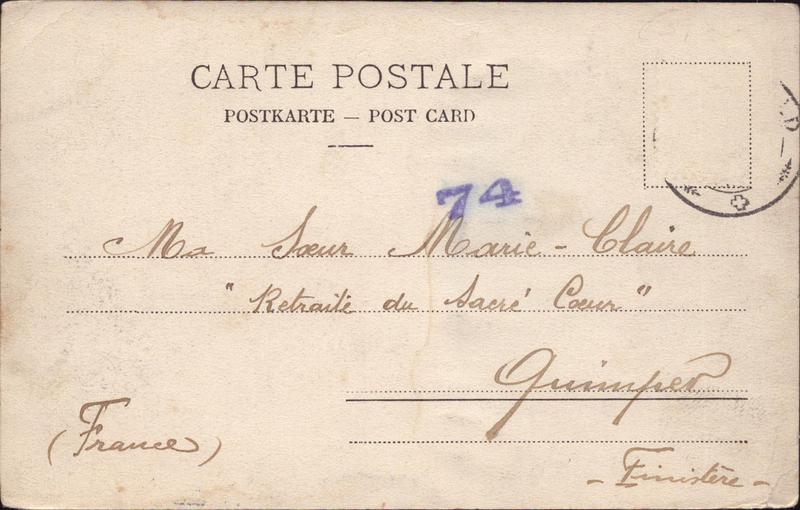 CARTE POSTALE
POSTKARTE — POST CARD
74
Ma Sœur Marie-Claire
"Retraite du Sacré Cœur"
Quimper
(France)
- Finistère -